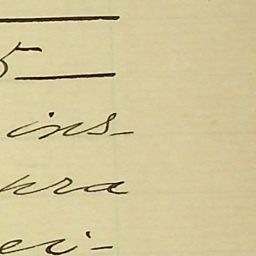 5
ins-
ura
ei-